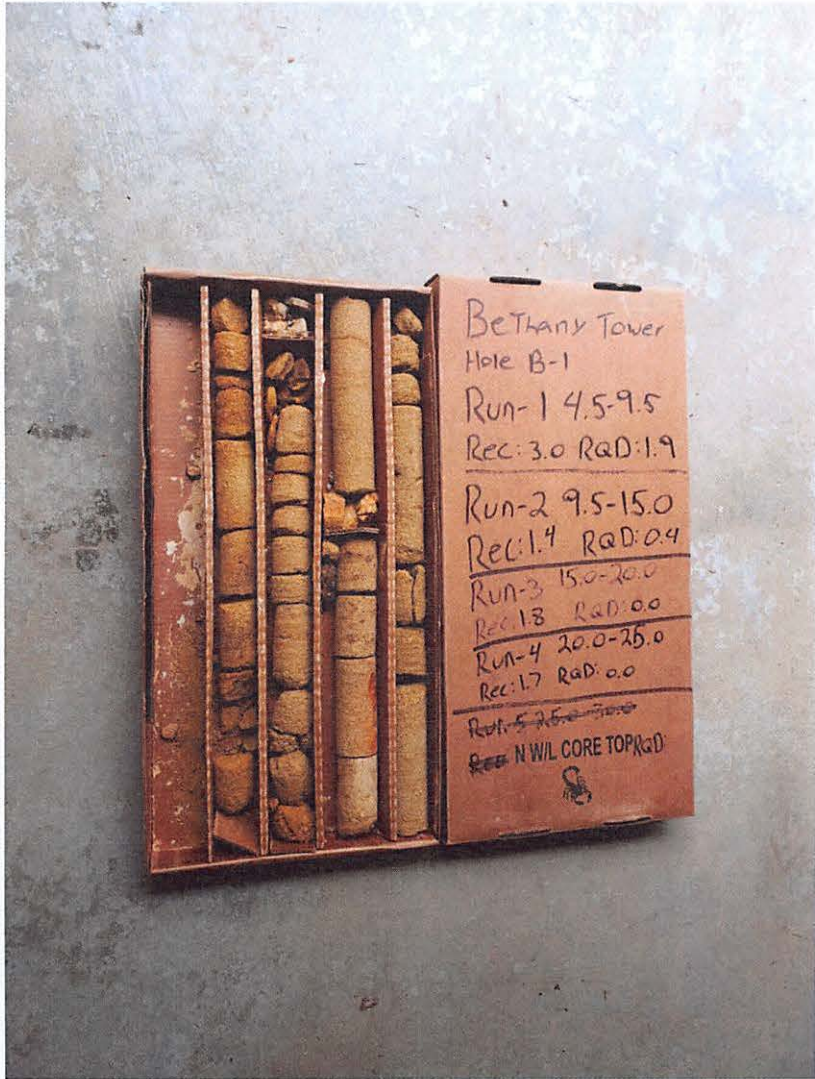 BeThany Tower
Hole B-1
Run-1 4.5-9.5
Rec: 3.0 RQD: 1.9
Run-2 9.5-15.0
Rec: 1.4 RQD: 0.4
Run-3 15.0-20.0
Rec: 1.8 RQD: 0.0
Run-4 20.0-25.0
Rec: 1.7 RQD: 0.0
Run-5 25.0-30.0
Rec N W/L CORE TOP RQD: